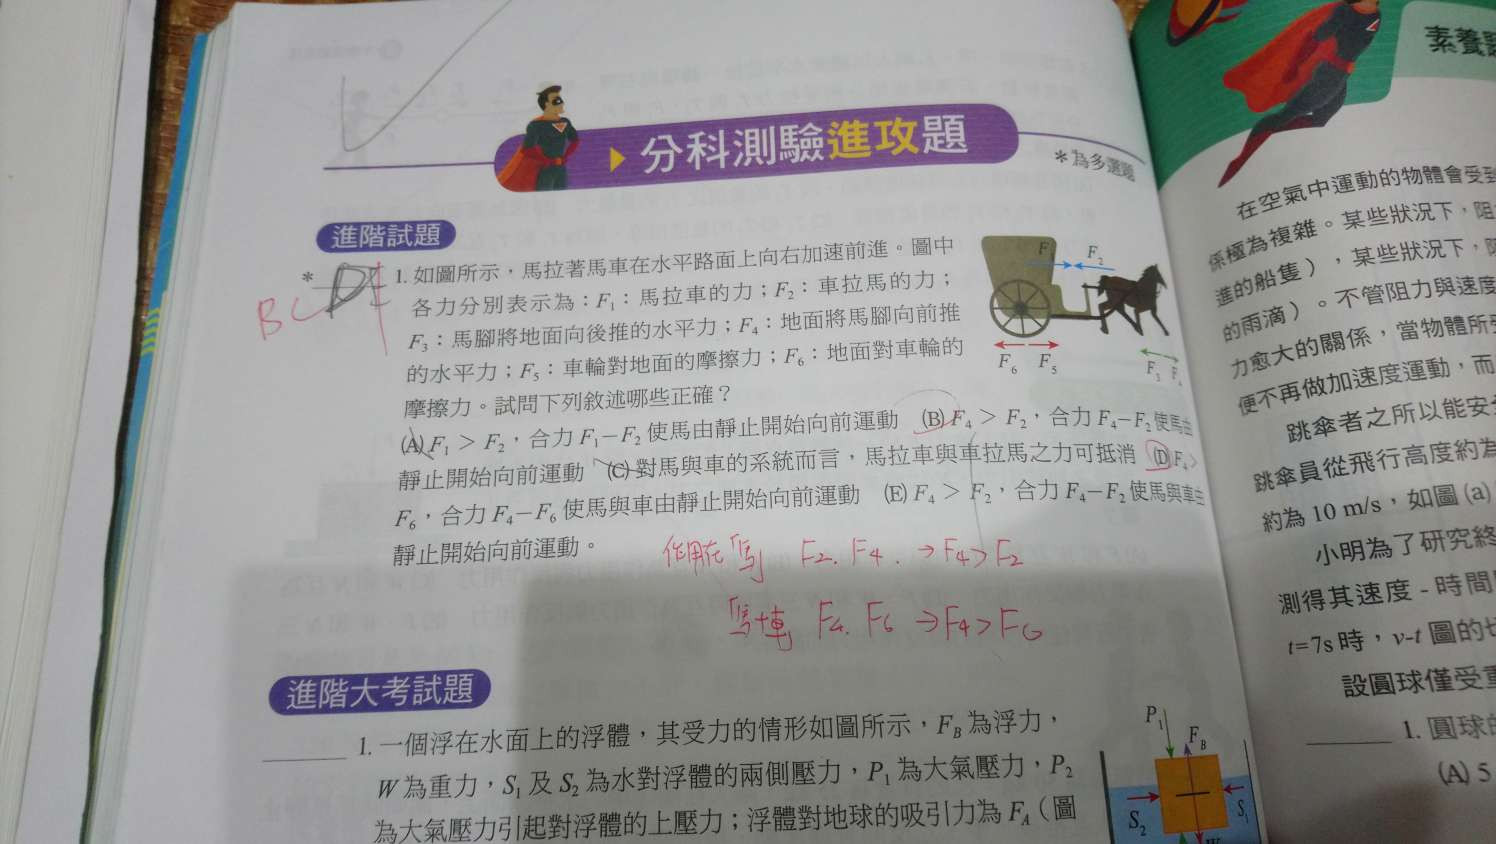 分科測驗進攻題
*為多選題
進階試題
*
B C D
1. 如圖所示，馬拉著馬車在水平路面上向右加速前進。圖中
各力分別表示為：F₁：馬拉車的力；F₂：車拉馬的力；
F₃：馬腳將地面向後推的水平力；F₄：地面將馬腳向前推
的水平力；F₅：車輪對地面的摩擦力；F₆：地面對車輪的
摩擦力。試問下列敘述哪些正確？
(A) F₁＞F₂，合力 F₁－F₂ 使馬由靜止開始向前運動 (B) F₄＞F₂，合力 F₄－F₂ 使馬由
靜止開始向前運動 (C) 對馬與車的系統而言，馬拉車與車拉馬之力可抵消 (D) F₄＞
F₆，合力 F₄－F₆ 使馬與車由靜止開始向前運動 (E) F₄＞F₂，合力 F₄－F₂ 使馬與車由
靜止開始向前運動。
F
F₂
F₆ F₅
F₃
作用在馬 F₂. F₄. → F₄＞F₂
馬+車 F₄. F₆ → F₄＞F₆
進階大考試題
1. 一個浮在水面上的浮體，其受力的情形如圖所示，F_B 為浮力，
W 為重力，S₁ 及 S₂ 為水對浮體的兩側壓力，P₁ 為大氣壓力，P₂
為大氣壓力引起對浮體的上壓力；浮體對地球的吸引力為 F_A（圖
P₁
F_B
S₂
S₁
W
素養
在空氣中運動的物體會受到
係極為複雜。某些狀況下，阻
進的船隻），某些狀況下，阻
的雨滴）。不管阻力與速度
力愈大的關係，當物體所受
便不再做加速度運動，而
跳傘者之所以能安全
跳傘員從飛行高度約為
約為 10 m/s，如圖(a)
小明為了研究終
測得其速度 - 時間
t=7s 時，v-t 圖的
設圓球僅受重
1. 圓球的
(A) 5